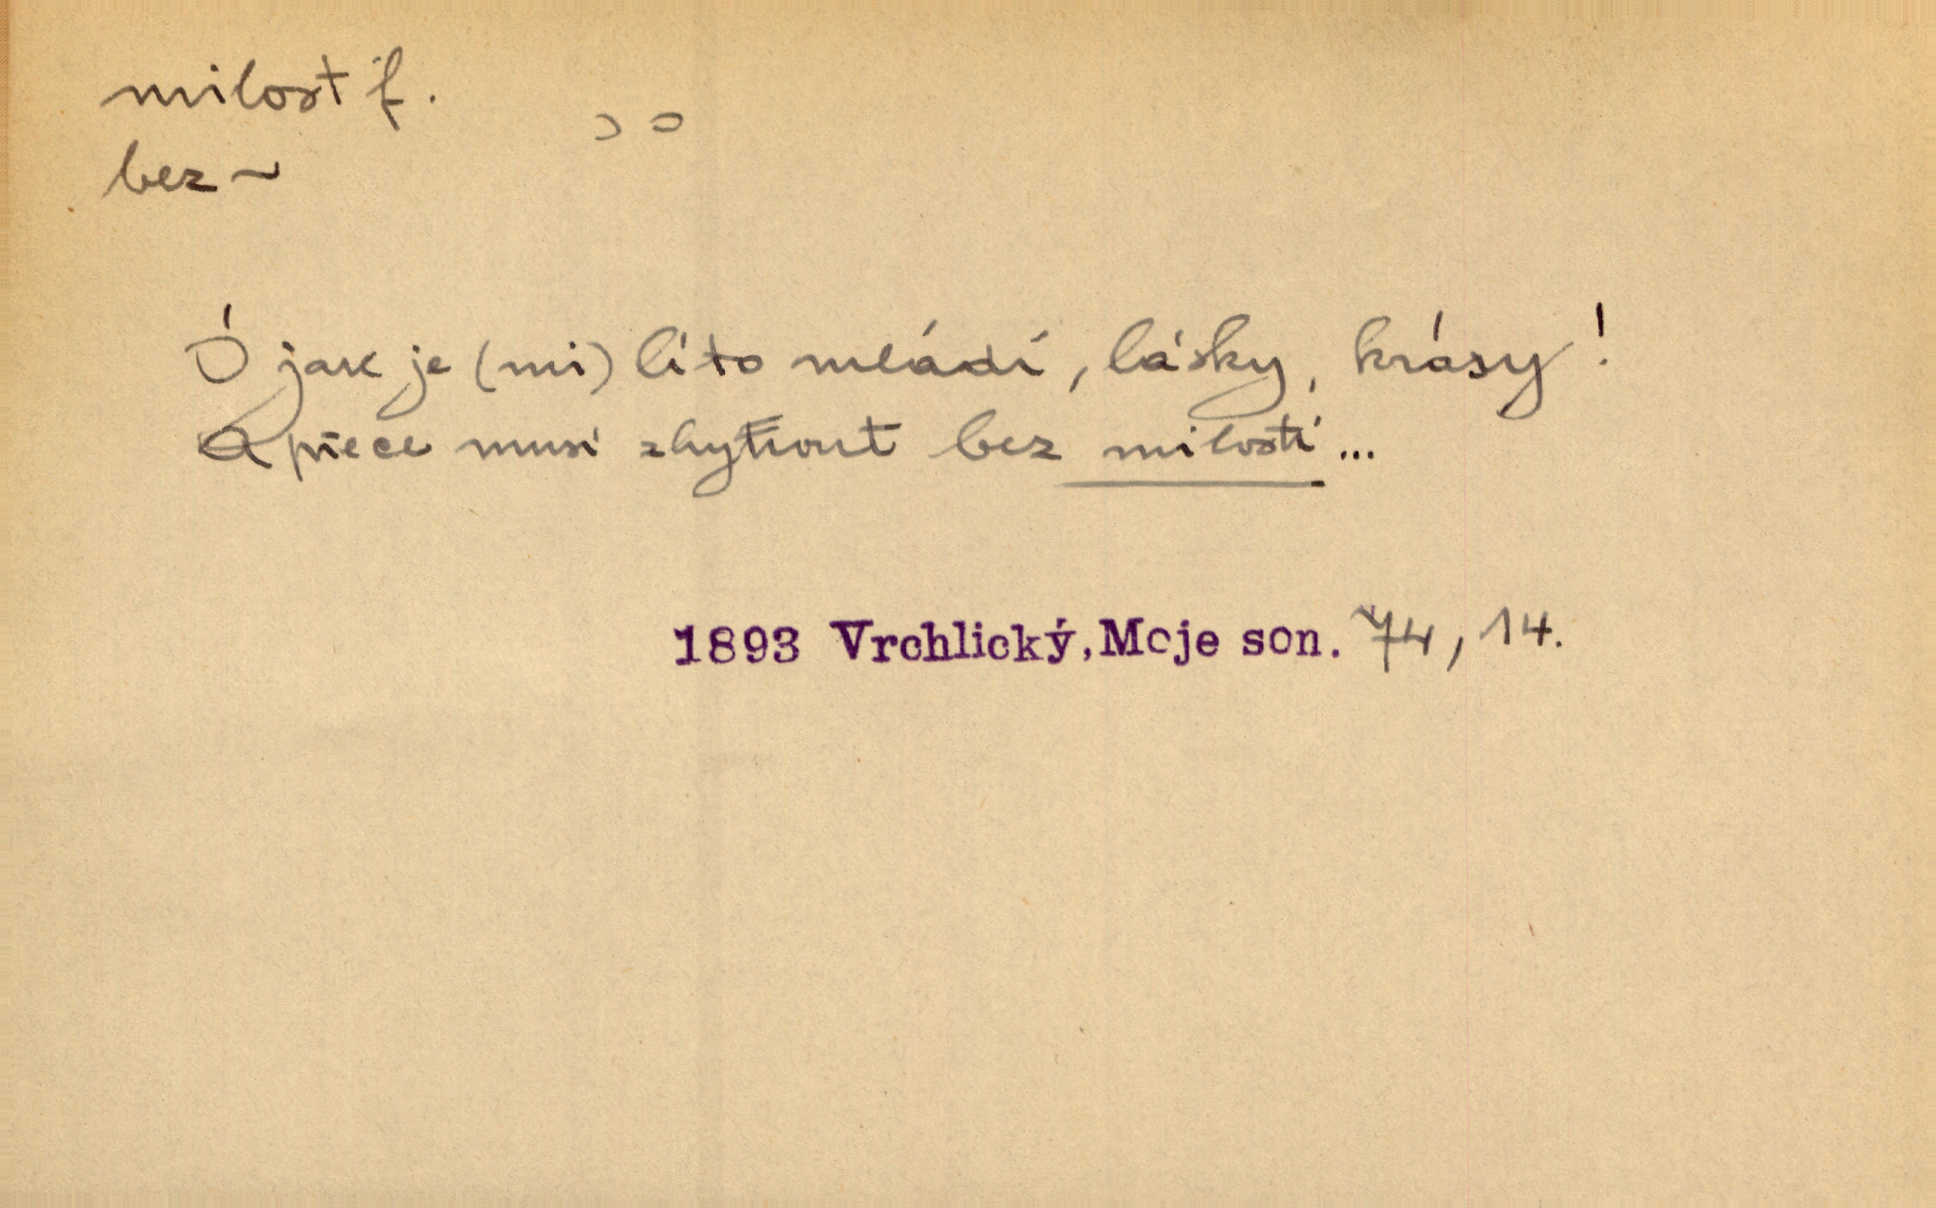 milost f.
bez ~
Ó jak je (mi) líto mládí, lásky, krásy!
A přece musí zhytnout bez milosti...
1893 Vrchlický, Moje son. 74, 14.